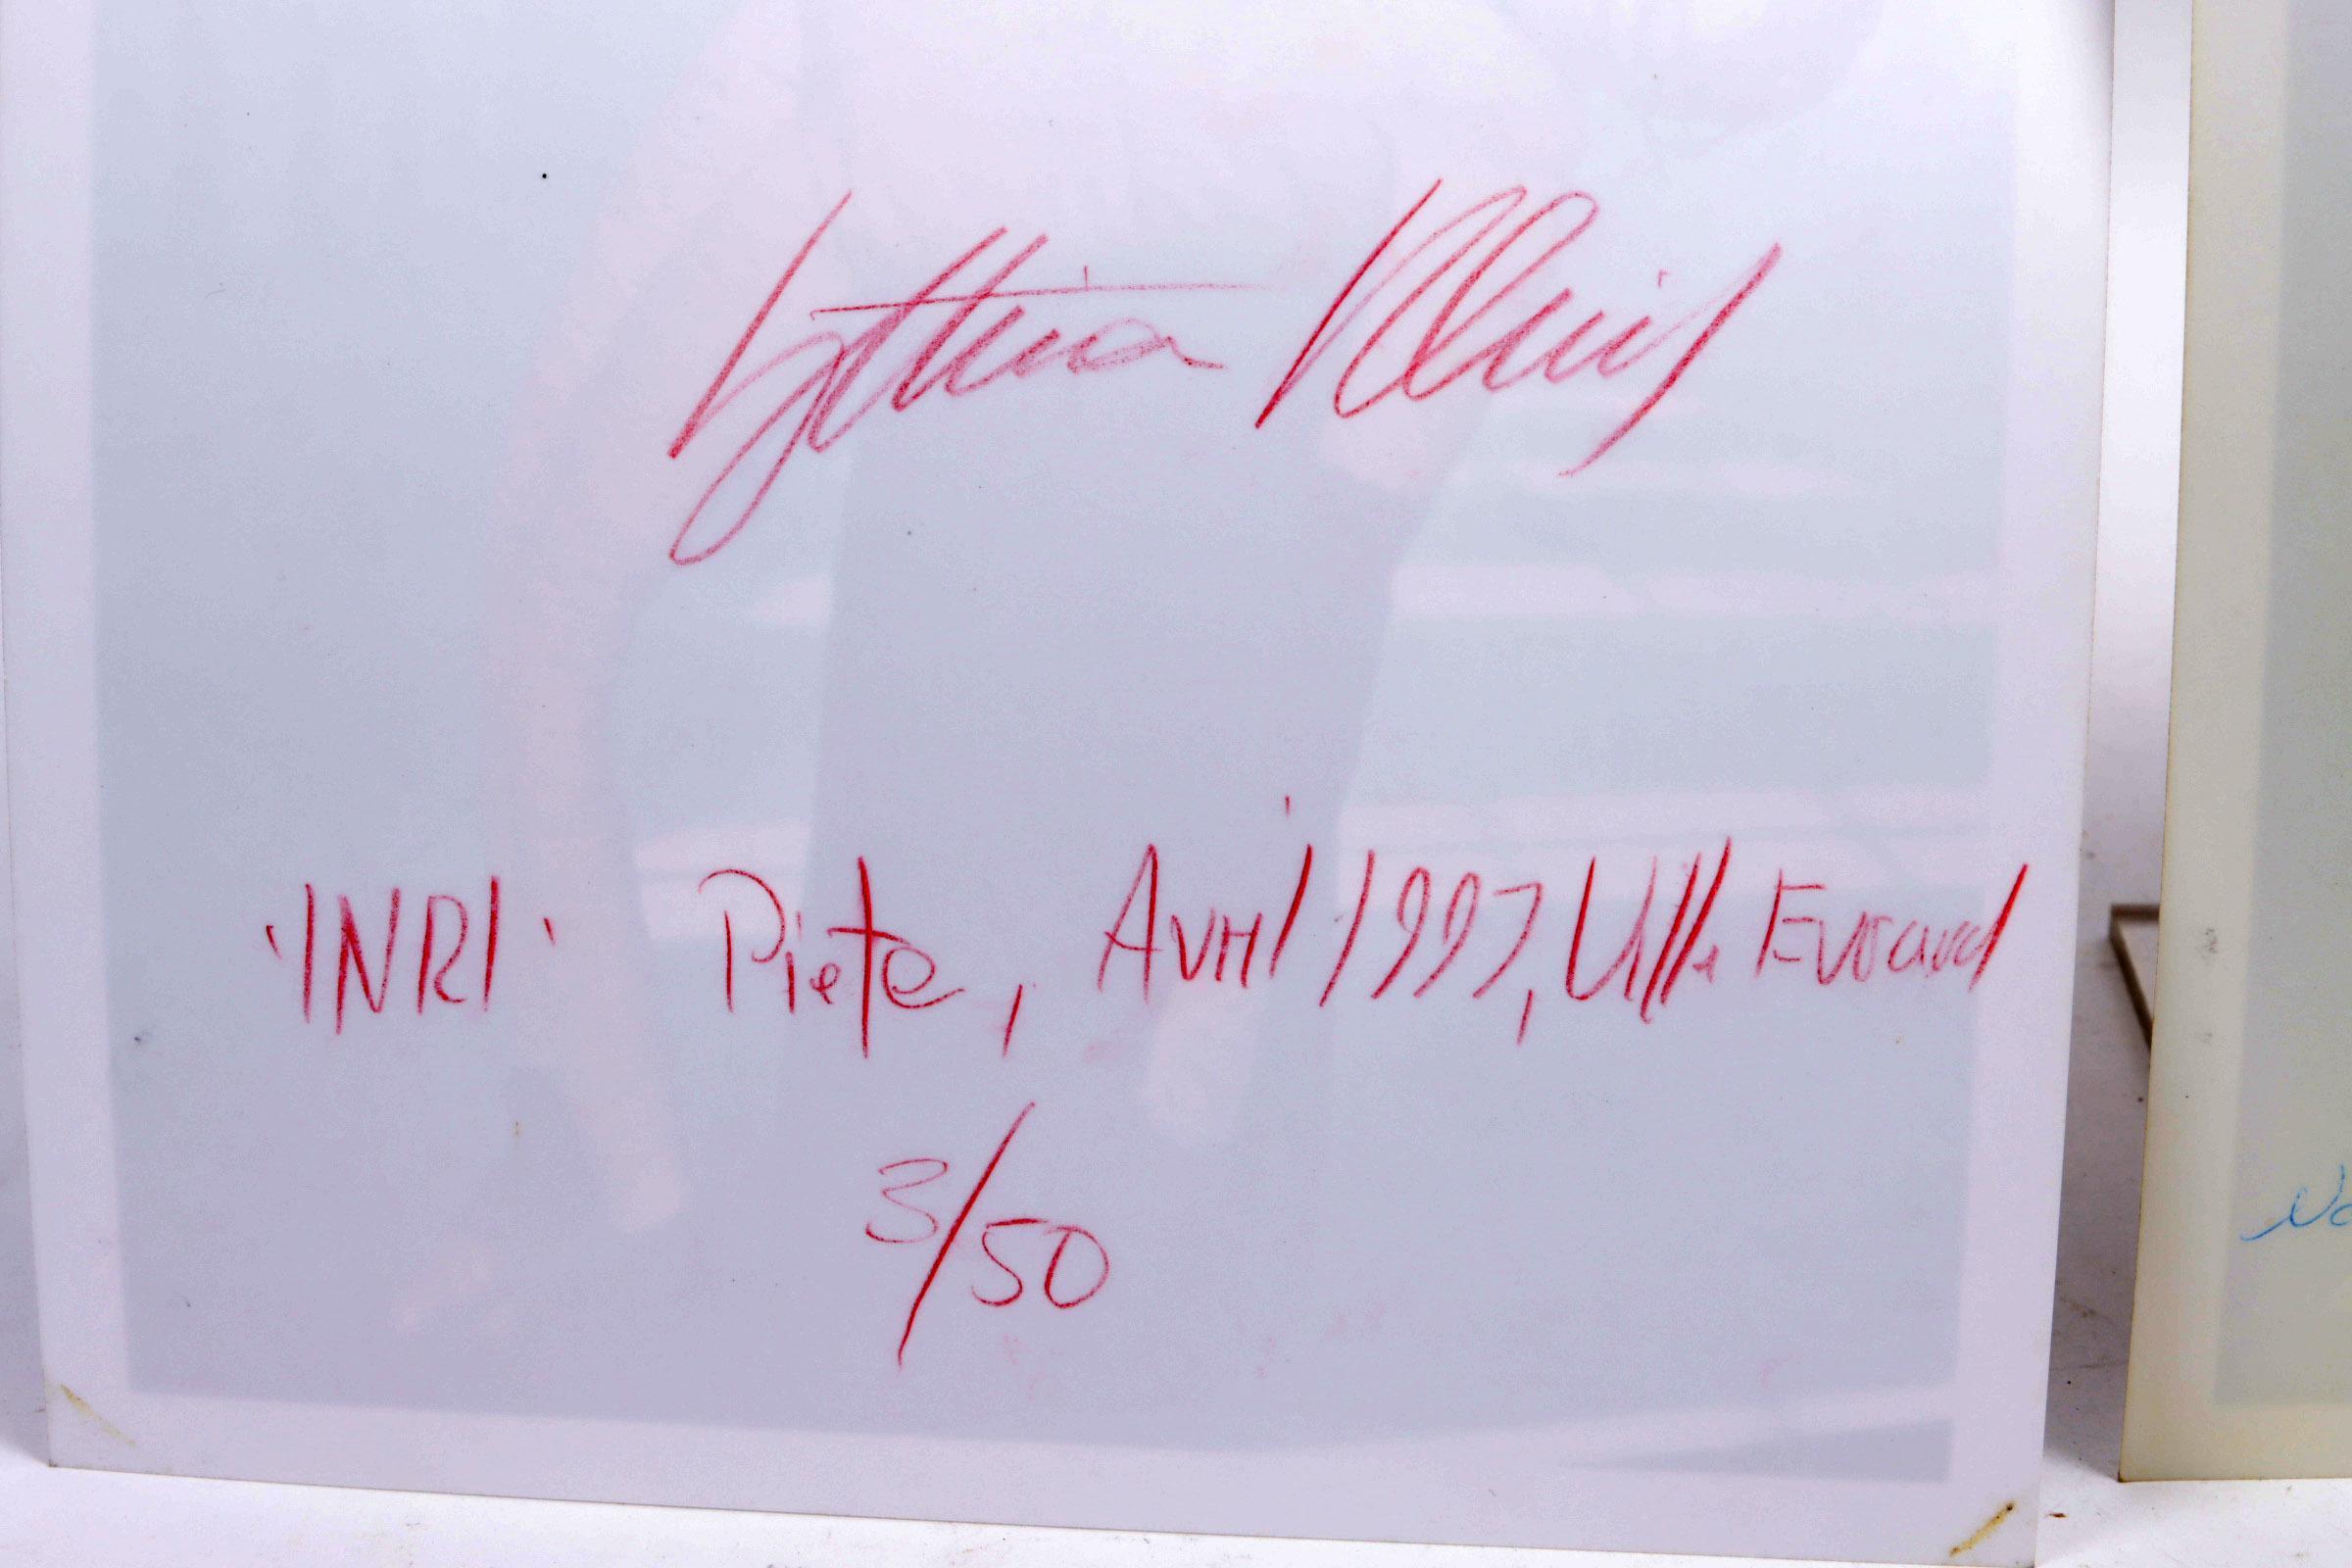 Bettina Rheims
'INRI' Pieta, Avril 1997, Ville Evrard
3/50